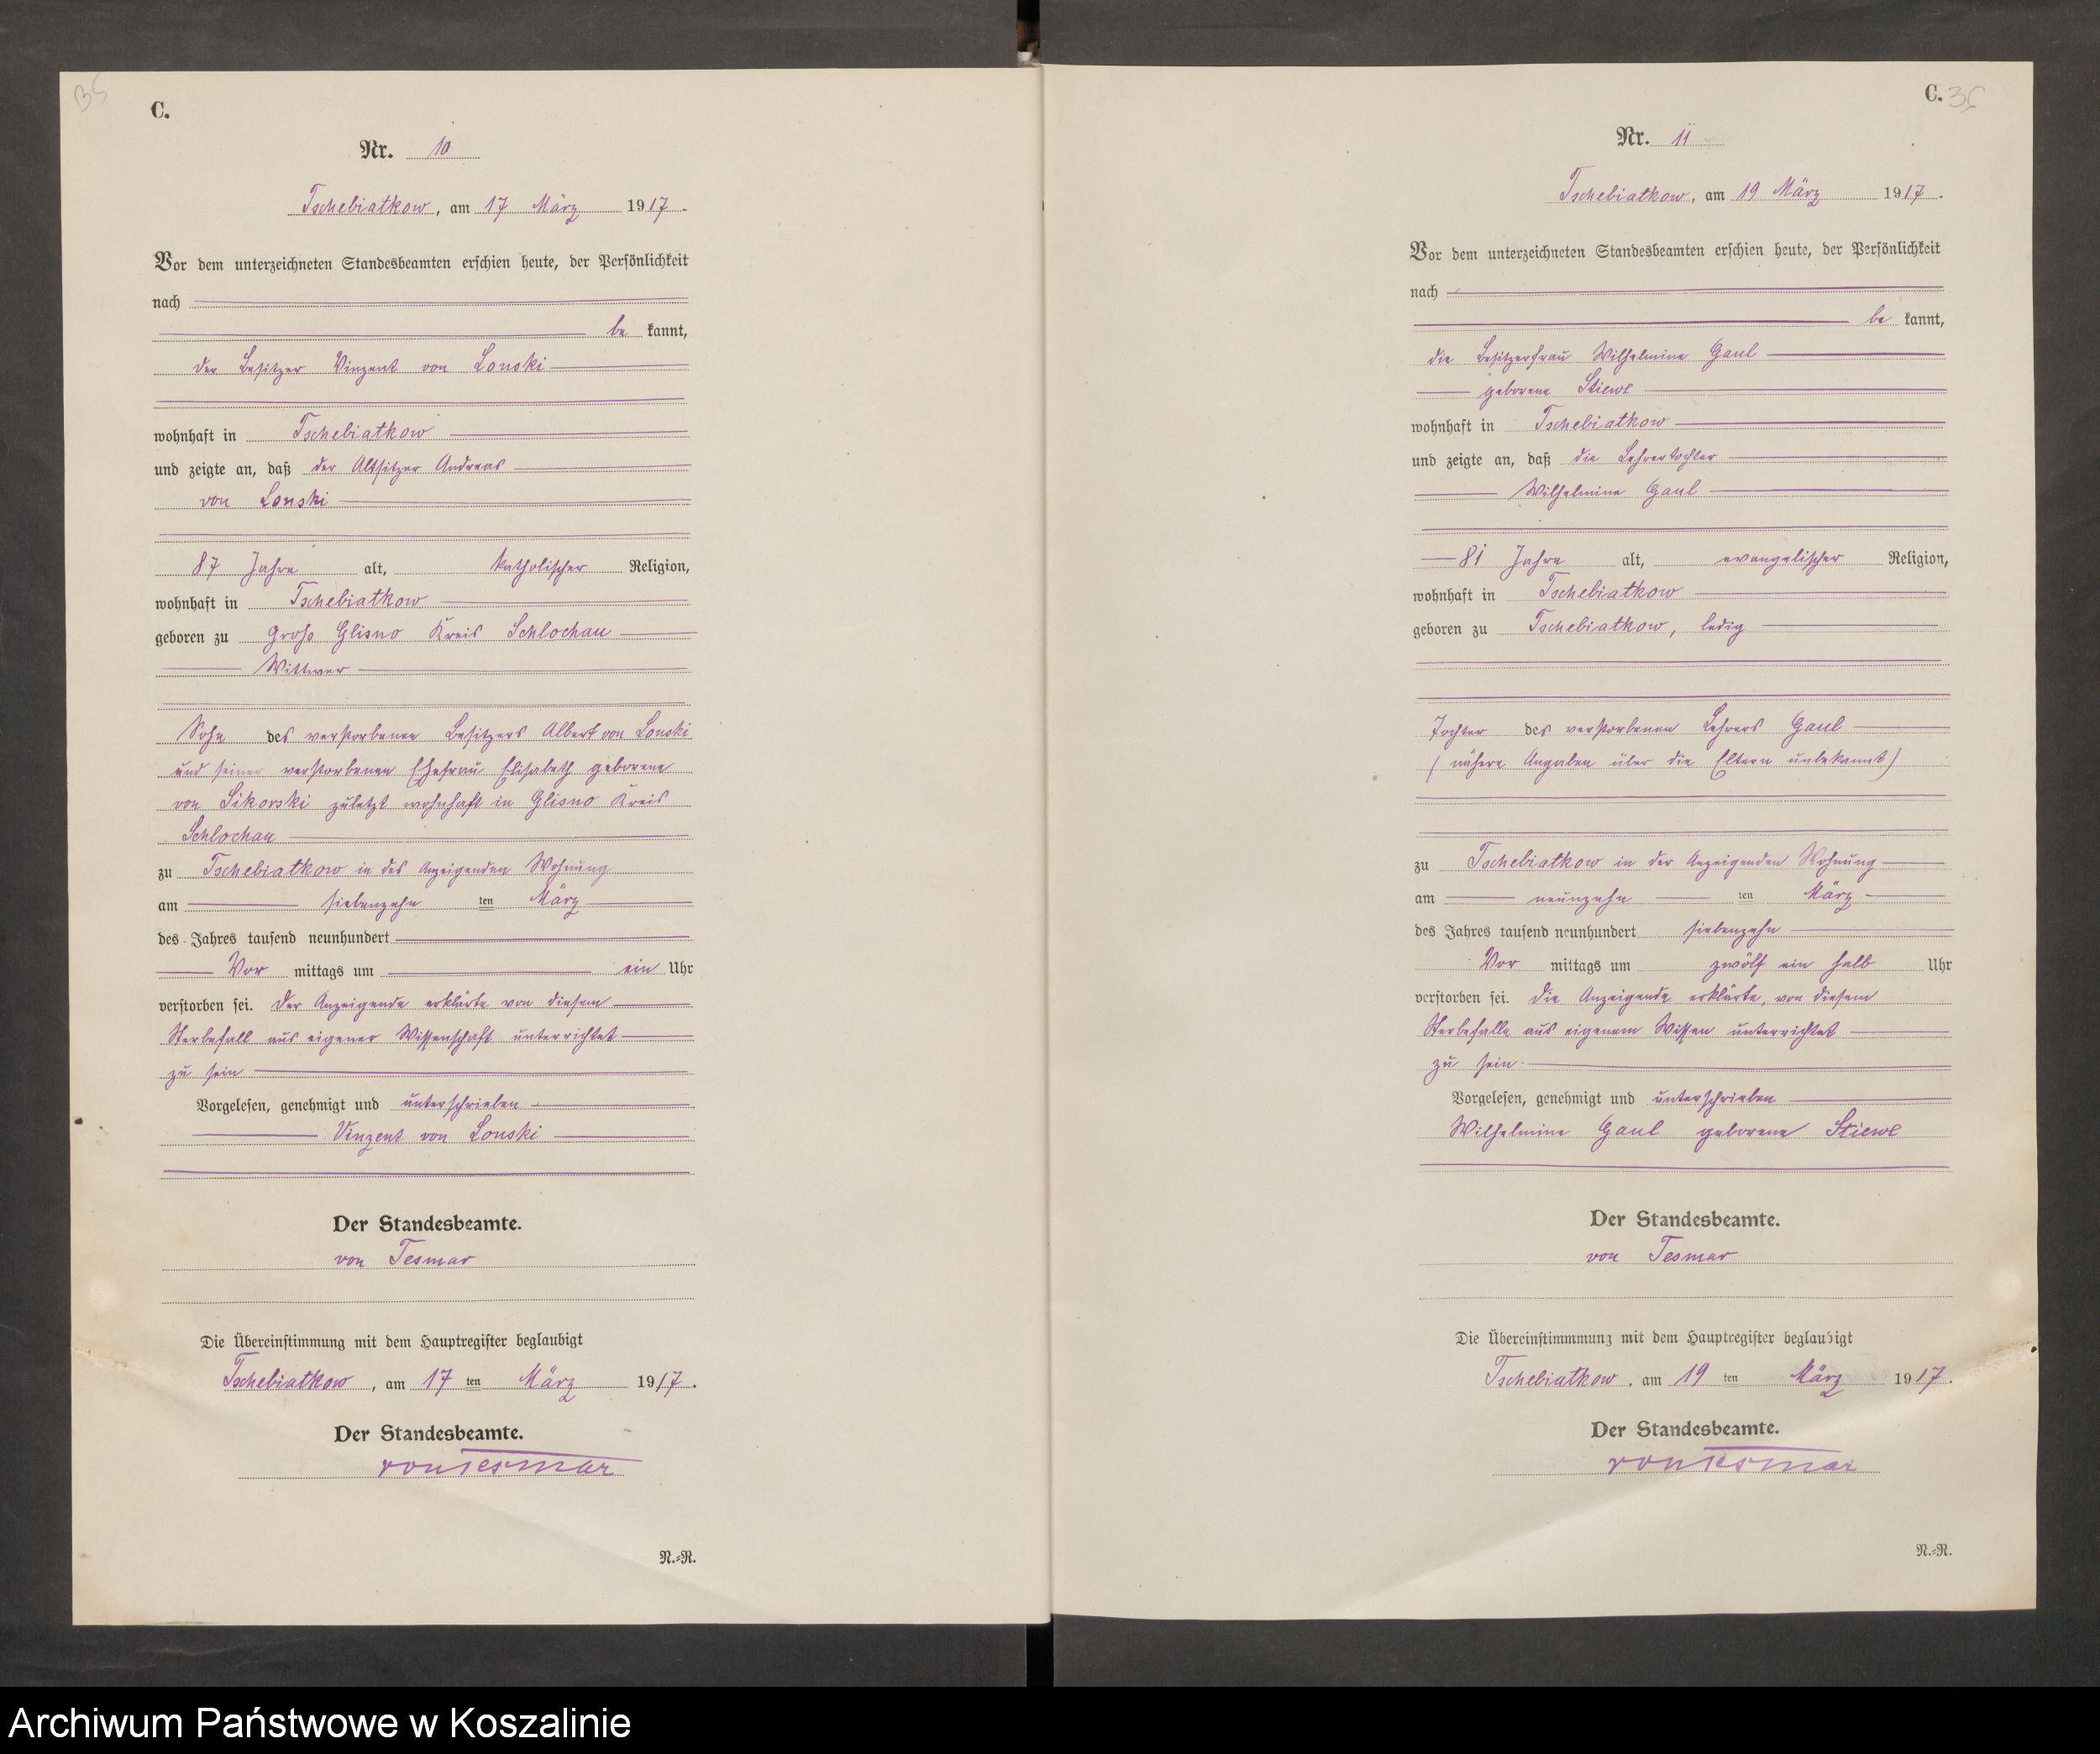 35
C.
Nr. 10
Tschebiatkow, am 17 März 1917.
Vor dem unterzeichneten Standesbeamten erschien heute, der Persönlichkeit
nach
be kannt,
der Besitzer Vinzent von Lonski
wohnhaft in Tschebiatkow
und zeigte an, daß der Altsitzer Andreas
von Lonski
87 Jahre alt, katholischer Religion,
wohnhaft in Tschebiatkow
geboren zu Groß Glisno Kreis Schlochau
Wittwer
Sohn des verstorbenen Besitzers Albert von Lonski
und seiner verstorbenen Ehefrau Elisabeth geborene
von Sikorski zuletzt wohnhaft in Glisno Kreis
Schlochau
zu Tschebiatkow in des Anzeigenden Wohnung
am siebenzehn ten März
des Jahres tausend neunhundert
Vor mittags um ein Uhr
verstorben sei. Der Anzeigende erklärte von diesem
Sterbefall aus eigener Wissenschaft unterrichtet
zu sein
Vorgelesen, genehmigt und unterschrieben
Vinzent von Lonski
Der Standesbeamte.
von Tesmar
Die Übereinstimmung mit dem Hauptregister beglaubigt
Tschebiatkow, am 17 ten März 1917.
Der Standesbeamte.
von Tesmar
N.=R.
C. 36
Nr. 11
Tschebiatkow, am 19 März 1917.
Vor dem unterzeichneten Standesbeamten erschien heute, der Persönlichkeit
nach
be kannt,
die Besitzerfrau Wilhelmine Gaul
geborene Stiewe
wohnhaft in Tschebiatkow
und zeigte an, daß die Lehrertochter
Wilhelmine Gaul
81 Jahre alt, evangelischer Religion,
wohnhaft in Tschebiatkow
geboren zu Tschebiatkow, ledig
Tochter des verstorbenen Lehrers Gaul
(nähere Angaben über die Eltern unbekannt)
zu Tschebiatkow in der Anzeigenden Wohnung
am neunzehn ten März
des Jahres tausend neunhundert siebenzehn
Vor mittags um zwölf ein halb Uhr
verstorben sei. Die Anzeigende erklärte, von diesem
Sterbefalle aus eigenem Wissen unterrichtet
zu sein
Vorgelesen, genehmigt und unterschrieben
Wilhelmine Gaul geborene Stiewe
Der Standesbeamte.
von Tesmar
Die Übereinstimmmung mit dem Hauptregister beglaubigt
Tschebiatkow, am 19 ten März 1917.
Der Standesbeamte.
von Tesmar
N.=R.
Archiwum Państwowe w Koszalinie